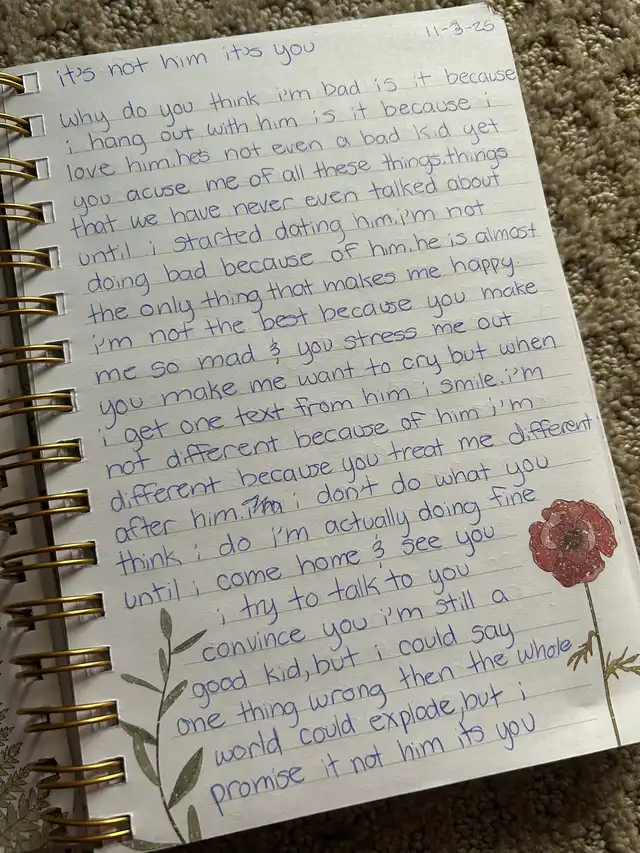 11-3-25
it's not him it's you
why do you think i'm bad is it because
i hang out with him is it because i
love him.he's not even a bad kid yet
you acuse me of all these things.things
that we have never even talked about
until i started dating him.i'm not
doing bad because of him.he is almost
the only thing that makes me happy.
i'm not the best because you make
me so mad & you stress me out
you make me want to cry but when
i get one text from him i smile.i'm
not different because of him i'm
different because you treat me different
after him. i don't do what you
think i do i'm actually doing fine
until i come home & see you
i try to talk to you
convince you i'm still a
good kid,but i could say
one thing wrong then the whole
world could explode,but i
promise it not him its you